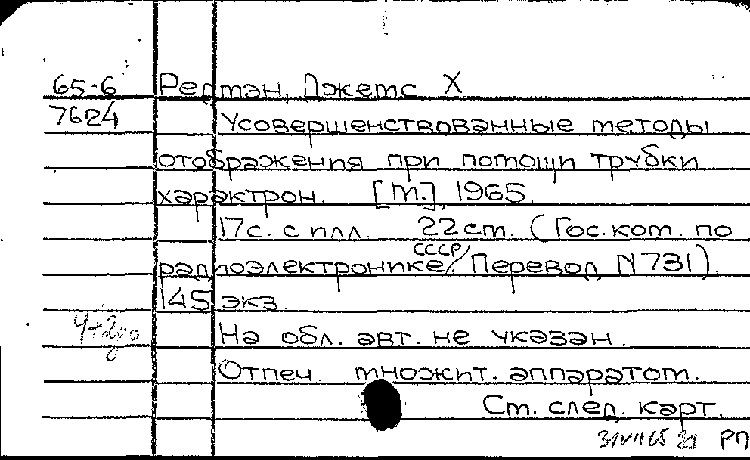 65-6 Редман, Джемс Х
7624 Усовершенствованные методы
отображения при помощи трубки
характрон. [М.], 1965.
17с. с илл. 22см. (Гос.ком. по
радиоэлектронике СССР/. Перевод N731)
145 экз.
На обл. авт. не указан.
Отпеч. множит. аппаратом.
См. след. карт.
РП